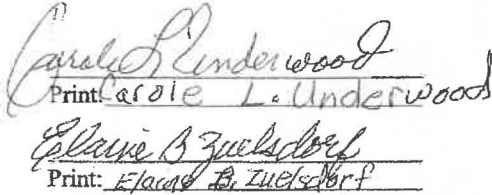 Carole L Underwood
Print: Carole L. Underwood
Elaine B Zuelsdorf
Print: Elaine B. Zuelsdorf